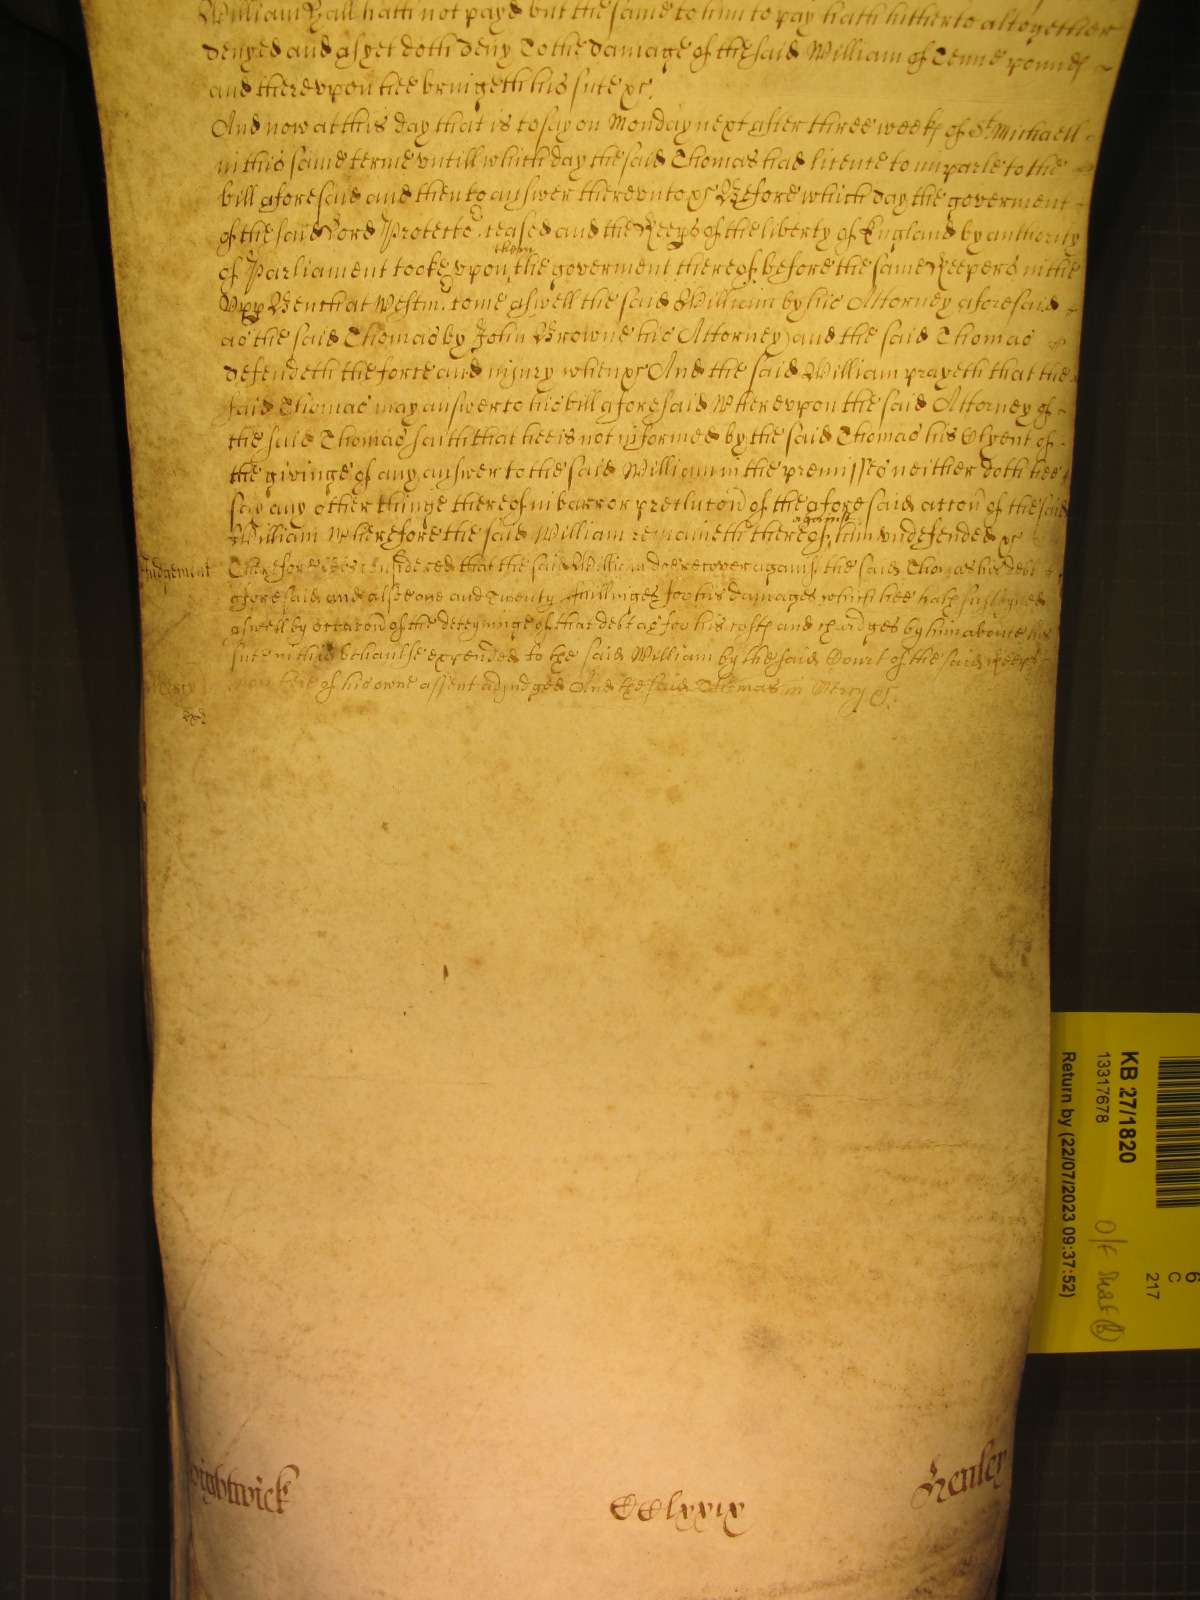 William Hall hath not payd but the same to him to pay hath hitherto altogether
denyed and as yet doth deny To the damage of the said William of Tenne pounds
and thereupon hee bringeth his sute &c.
And now at this day that is to say on Monday next after three weeks of St Michaell
in this same terme untill which day the said Thomas had licence to imparle to the
bill aforesaid and then to answer thereunto &c Before which day the goverment
of the said Lord Protector ceased and the Keeps of the liberty of England by authority
of Parliament tooke upon them the goverment thereof before the same Keepers in the
Upp Bench at Westm. come aswell the said William by his Attorney aforesaid
as the said Thomas by John Browne his Attorney and the said Thomas
defendeth the force and injury when &c And the said William prayeth that the
said Thomas may answer to his bill aforesaid Whereupon the said Attorney of
the said Thomas saith that hee is not informed by the said Thomas his Clyent of
the givinge of any answer to the said William in the premisses neither doth hee
say any other thinge thereof in barr or preclucon of the aforesaid accon of the said
William Wherefore the said William remaineth thereof against him undefended &c
Judgement Therefore it is considered that the said William doe recover against the said Thomas his debt
aforesaid and alsoe one and Twenty shillinges for his damages which hee hath susteyned
aswell by occacon of the deteyninge of that debt as for his costs and chardges by him aboute his
sute in this behaulfe expended to the said William by the said Court of the said Keeps
Mercy here of his owne assent adjudged And the said Thomas in Mercy &c.
ightwick
CClxxix
Henley
KB 27/1820
13317678
Return by (22/07/2023 09:37:52)
6
C
217